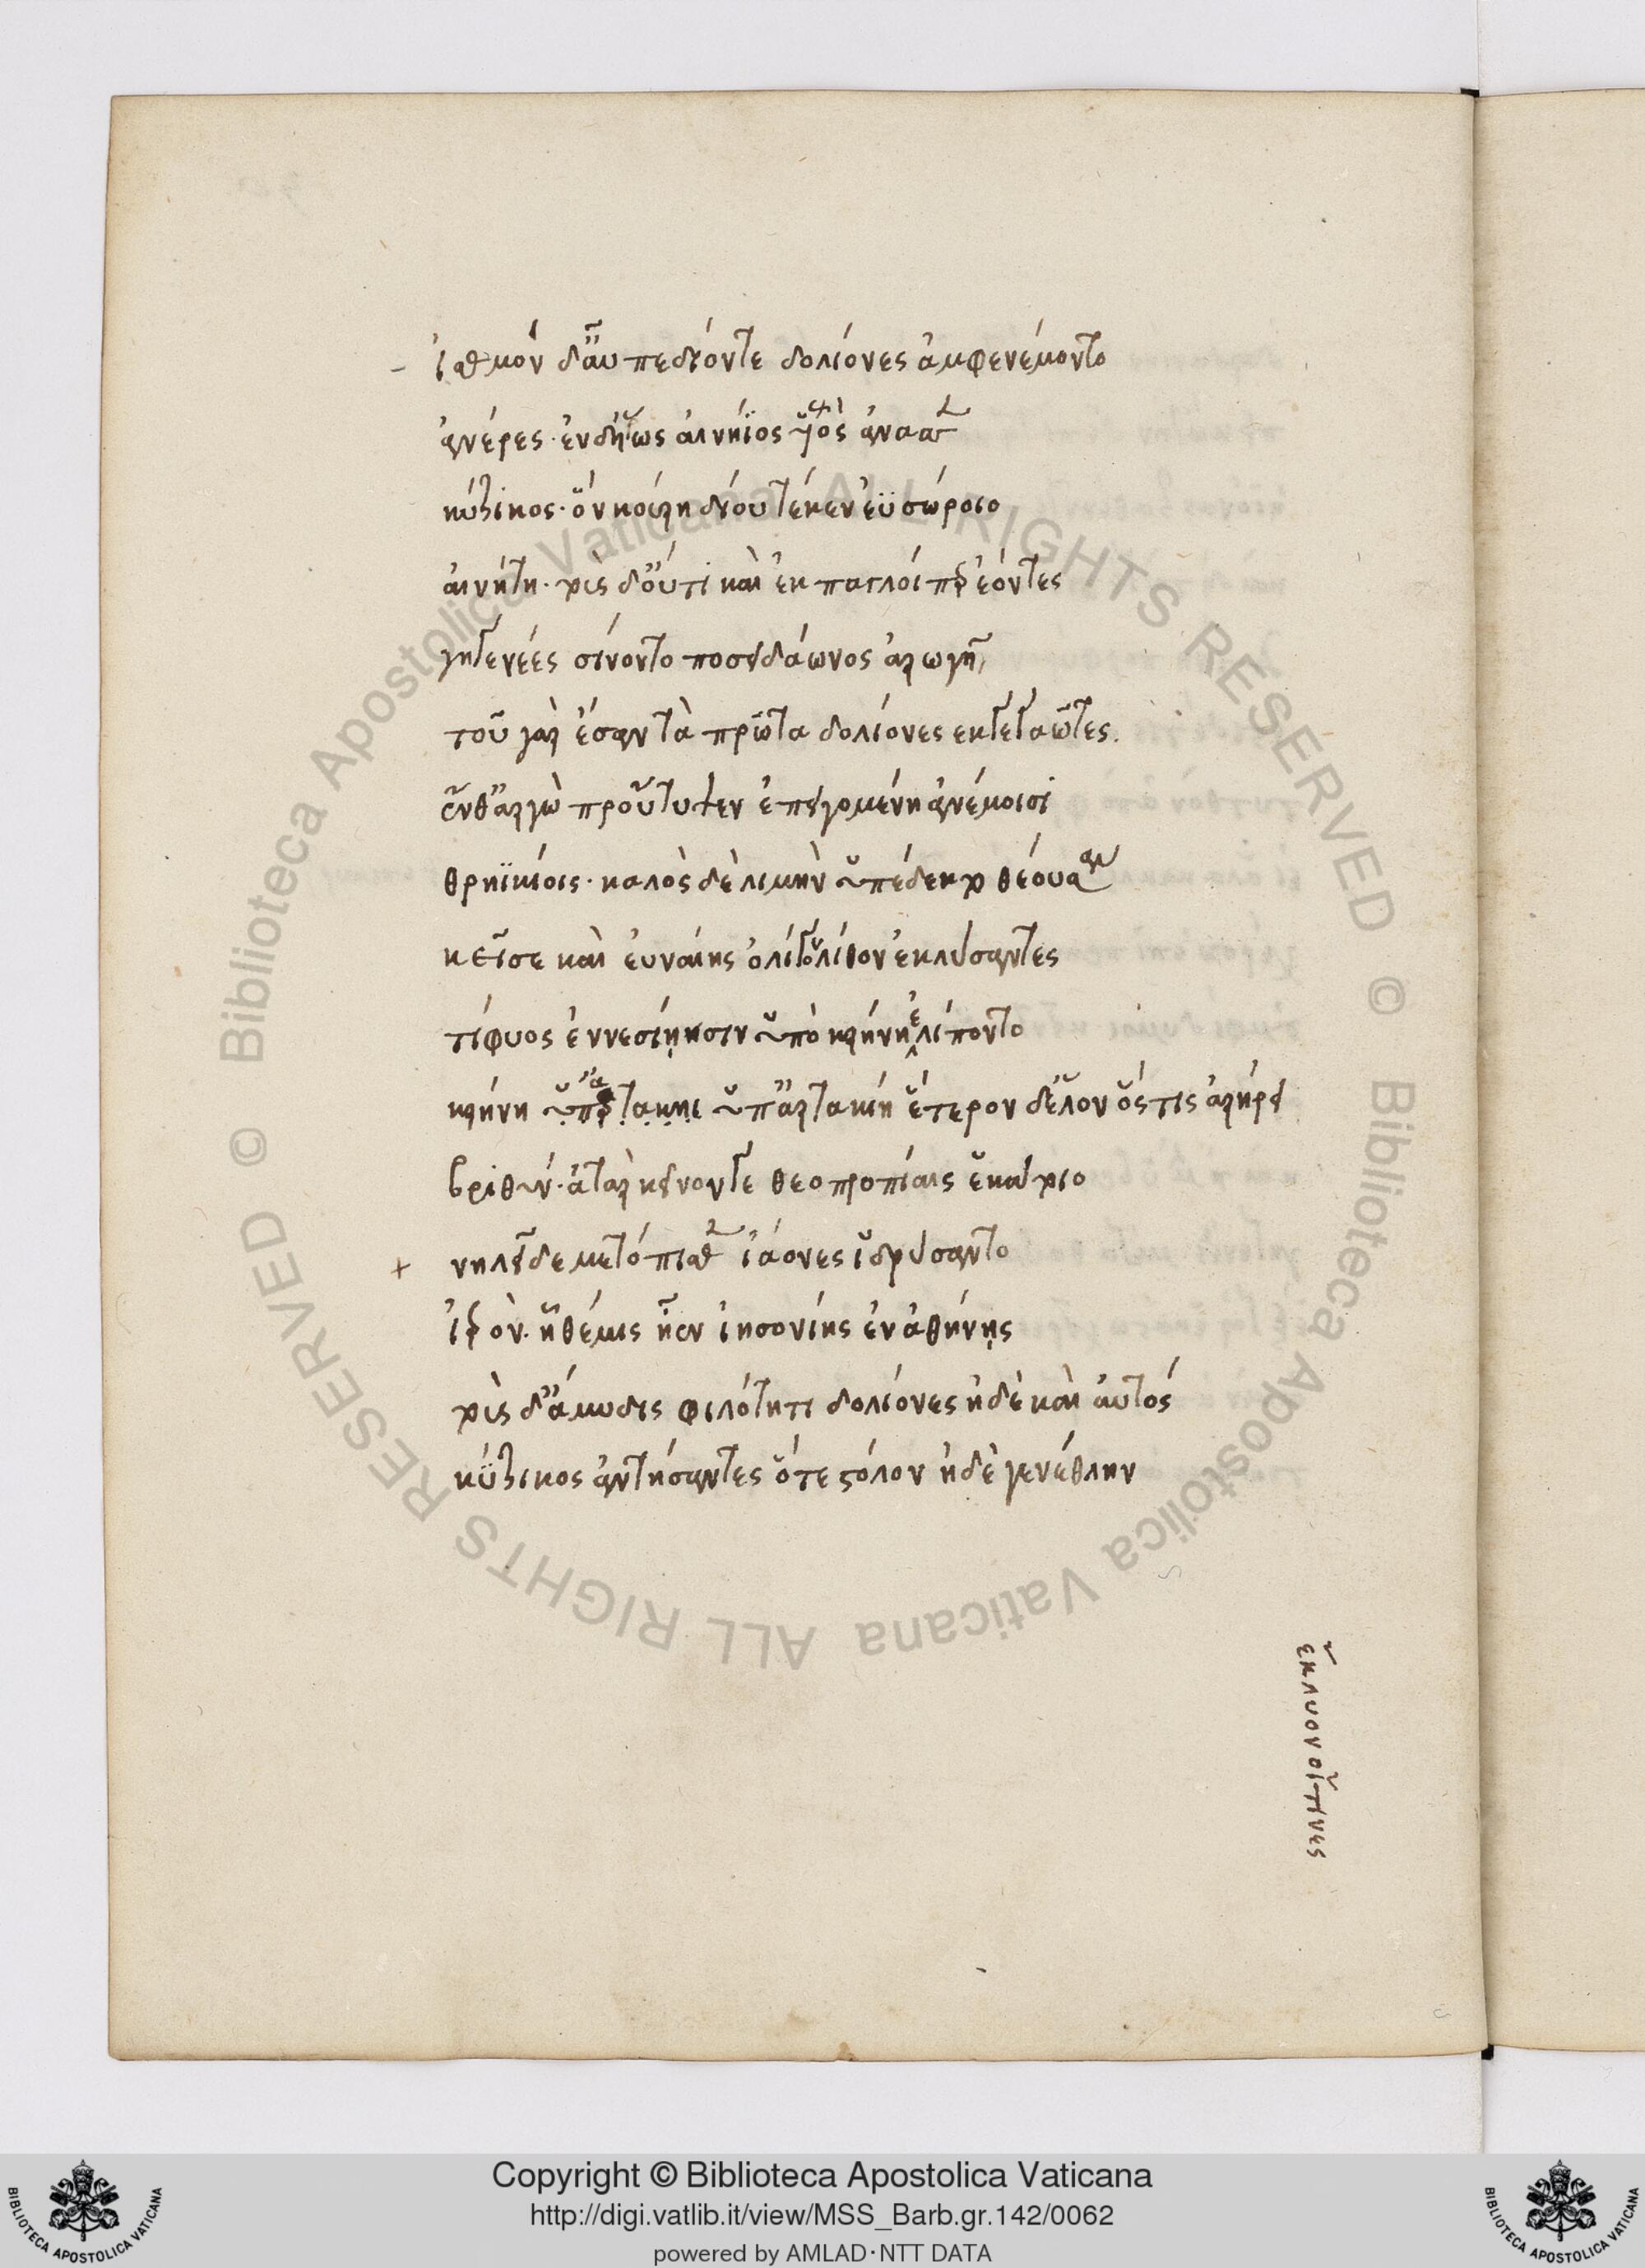 ἰσθμὸν δ᾽ αὖ πεδίον τε δολίονες ἀμφενέμοντο
ἀνέρες· ἐν δ᾽ ἥρως αἰνήϊος υἱὸς ἄνασσε
κύζικος· ὃν κούρη δίου τέκεν ἐϋσώροιο
αἰνήτη. τοῖς δ᾽ οὔτι καὶ ἔκπαγλοί περ ἐόντες
γηγενέες σίνοντο ποσειδάωνος ἀρωγῇ,
τοῦ γὰρ ἔσαν τὰ πρῶτα δολίονες ἐκγεγαῶτες.
ἔνθ᾽ ἀργὼ προὔτυψεν ἐπειγομένη ἀνέμοισι
θρηϊκίοις· καλὸς δὲ λιμὴν ὑπέδεκτο θέουσαν
κεῖσε καὶ εὐναίης ὀλίγον λίθον ἐκλύσαντες
τίφυος ἐννεσίῃσιν ὑπὸ κρήνῃ ἐλίποντο
κρήνη ὑπ᾽ ἀρτακηι ὑπ᾽ ἀρτακίη ἕτερον δ᾽ ἕλον ὅς τις ἀρήρει
βριθύν· ἀτὰρ κεῖνον γε θεοπροπίαις ἑκάτοιο
νηλεῖδε μετόπισθεν ἰάονες ἱδρύσαντο
ἱερόν· ἣ θέμις ἦεν ἰησονίης ἐν ἀθήνῃς
τοῖς δ᾽ ἄμυδις φιλότητι δολίονες ἠδὲ καὶ αὐτός
κύζικος ἀντήσαντες ὅτε στόλον ἠδὲ γενέθλην
ἔκλυον οἵτινες
© Biblioteca Apostolica Vaticana ALL RIGHTS RESERVED © Biblioteca Apostolica Vaticana ALL RIGHTS RESERVED
Copyright © Biblioteca Apostolica Vaticana
http://digi.vatlib.it/view/MSS_Barb.gr.142/0062
powered by AMLAD·NTT DATA
BIBLIOTECA APOSTOLICA VATICANA
BIBLIOTECA APOSTOLICA VATICANA